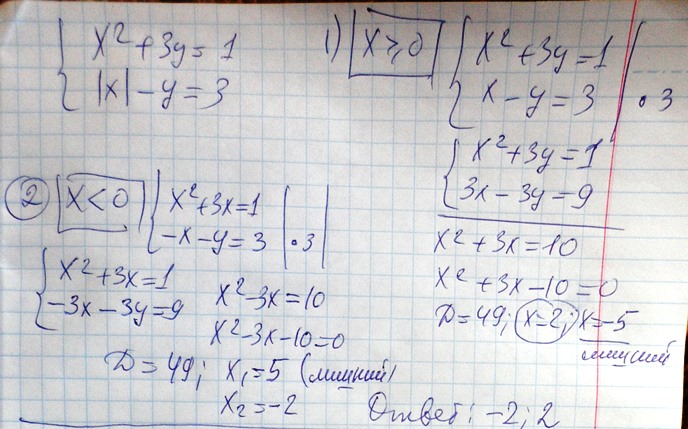 { x² + 3y = 1
|x| - y = 3
1) x ≥ 0 { x² + 3y = 1
x - y = 3 | · 3
{ x² + 3y = 1
3x - 3y = 9
x² + 3x = 10
x² + 3x - 10 = 0
D = 49; x = 2; x = -5
лишний
2 x < 0 { x² + 3x = 1
-x - y = 3 | · 3 |
{ x² + 3x = 1
-3x - 3y = 9
x² - 3x = 10
x² - 3x - 10 = 0
D = 49; x₁ = 5 (лишний)
x₂ = -2
Ответ: -2; 2